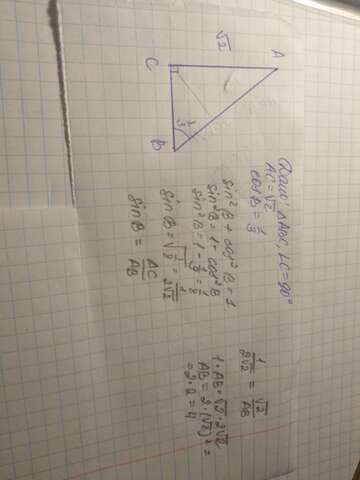 Дано: △ABC, ∠C=90°
AC=√2
cos B = 1/3
A
√2
C
1/3
B
sin²B + cos²B = 1
sin²B = 1 - cos²B
sin²B = 1 - 1/9 = 1/8
sin B = √1/8 = 1/2√2
sin B = AC/AB
1/2√2 = √2/AB
1·AB = √2·2√2
AB = 2·(√2)² =
= 2·2 = 4